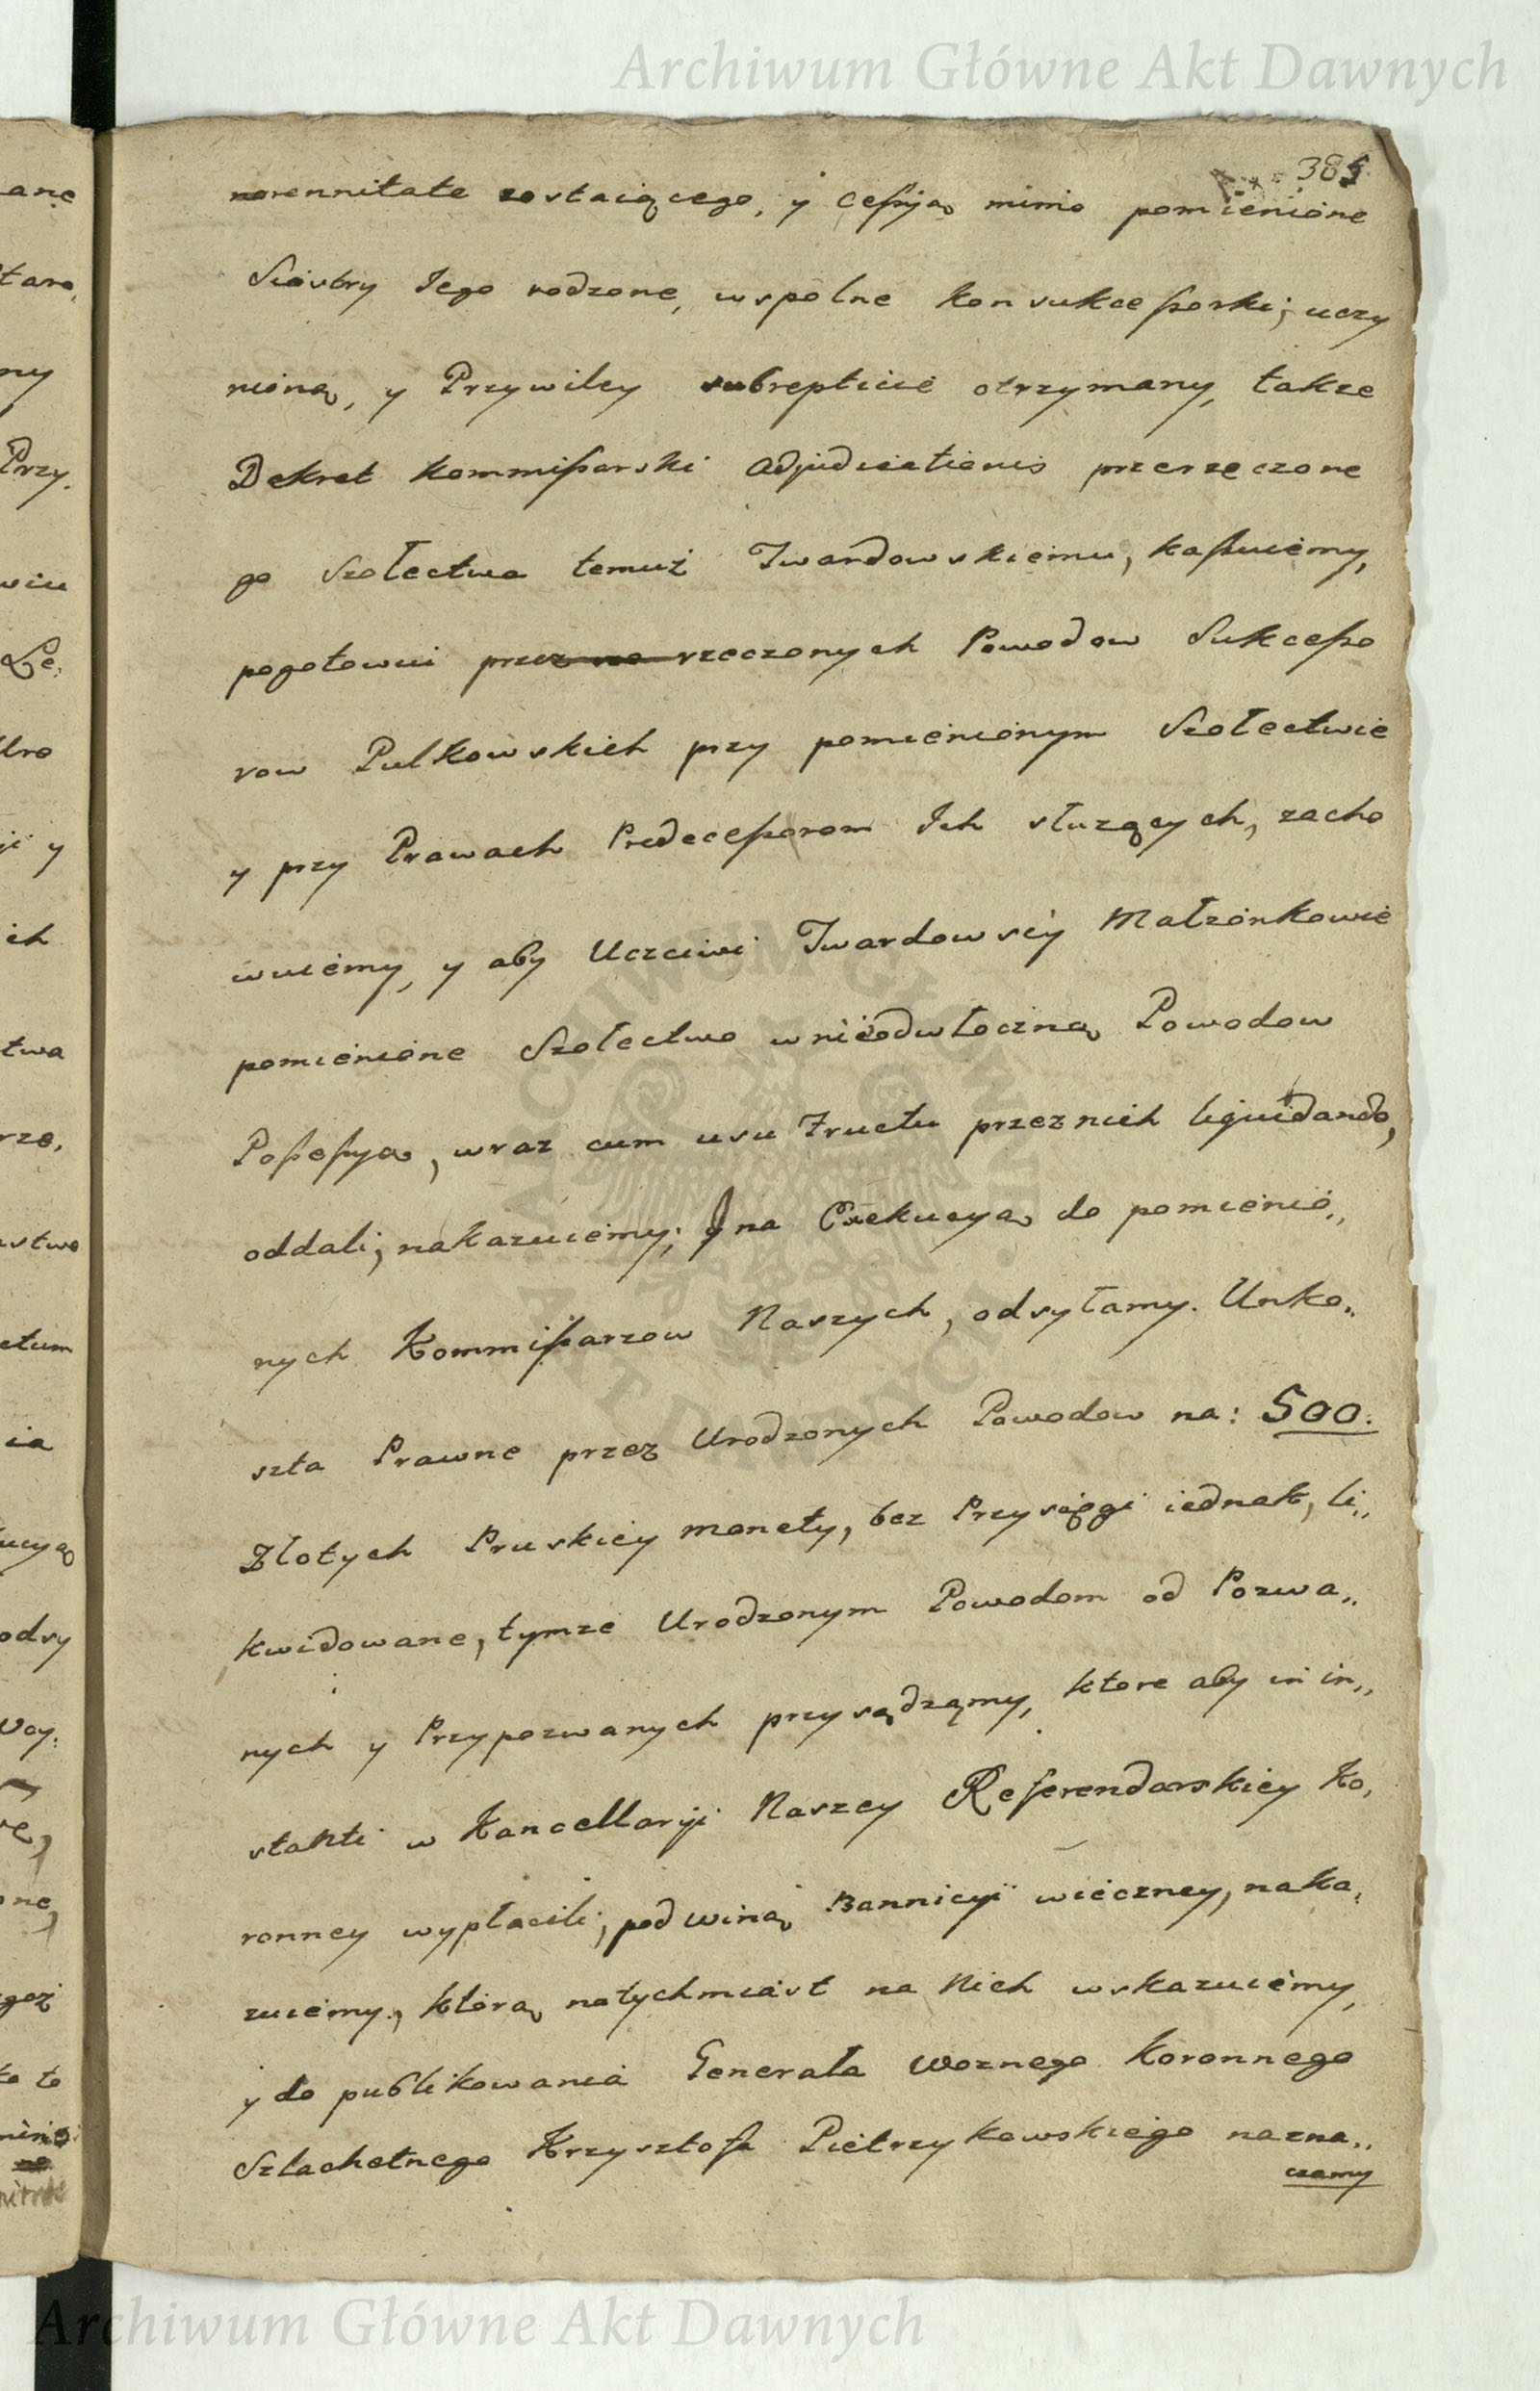 Archiwum Główne Akt Dawnych
385
norennitate zostaiącego, y Cessyą mimo pomienione
Siostry Jego rodzone, wspolne konsukcessorki, uczy
nioną, y Przywiley subrepticie otrzymany, takze
Dekret kommissarski adjudicationis przerzeczone
go Szołectwa temuż Twardowskiemu, kassuiemy,
pogotowiu przez na rzeczonych Powodow Sukcesso
row Pulkowskich przy pomienionym Szołectwie
y przy Prawach Predecessorom Ich służących, zacho
wuiemy, y aby Uczciwi Twardowscy Małzonkowie
pomienione Szołectwo w nieodwłoczną Powodow
Possessyą, wraz cum usu Fructu przez nich liquidando,
oddali, nakazuiemy; Y na Exekucyą do pomienio„
nych Kommissarzow Naszych, odsyłamy. Unko„
szta Prawne przez Urodzonych Powodow na: 500.
Złotych Pruskiey monety, bez Przysięgi iednak, li„
kwidowane, tymze Urodzonym Powodom od Pozwa„
nych y Przypozwanych przysądzamy, ktore aby in in„
stakti w Kancellaryi Naszey Referendarskiey Ko,
ronney wypłacili, pod winą Bannicyi wieczney, naka,
zuiemy, którą natychmiast na Nich wskazuiemy,
y do publikowania Generała Woznego Koronnego
Szlachetnego Krzysztofa Pietrzykowskiego nazna„
czamy
Archiwum Główne Akt Dawnych